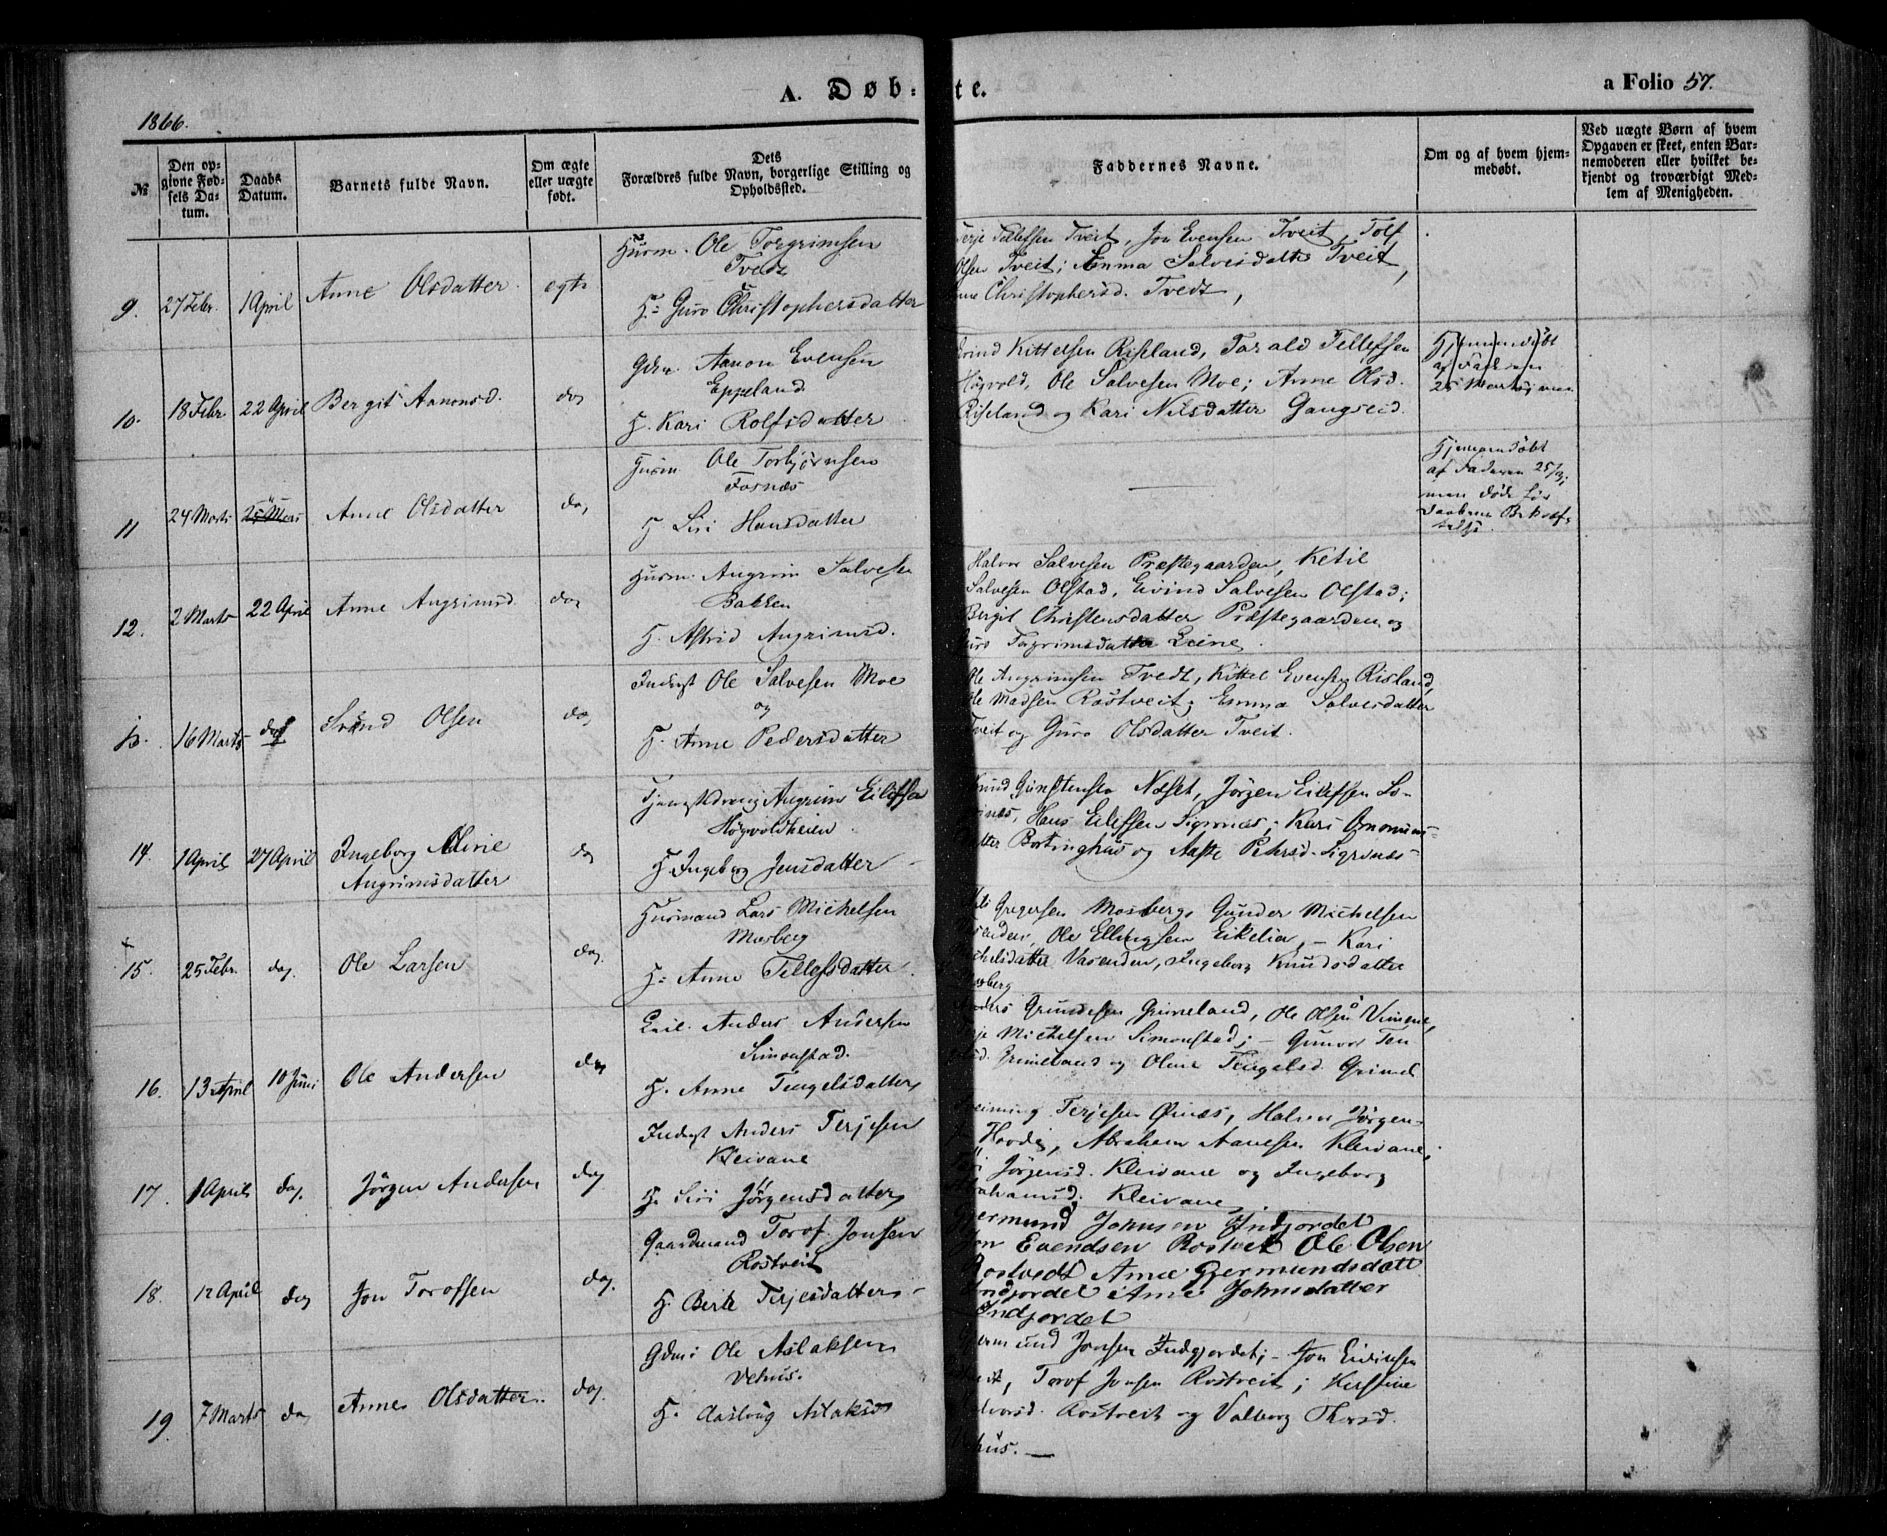 A. Døb-
te.
a Folio 57.
1866.
№
Den opgivne Fødsels Datum.
Daabs Datum.
Barnets fulde Navn.
Om ægte eller uægte født.
Dets Forældres fulde Navn, borgerlige Stilling og Opholdssted.
Faddernes Navne.
Om og af hvem hjemmedøbt.
Ved uægte Børn af hvem Opgaven er skeet, enten Barnemoderen eller hvilket bekjendt og troværdigt Medlem af Menigheden.
9. 27 Febr. 1 April Anne Olsdatter. egte
Husm. Ole Torgrimsen
Tvedt
H. Guro Christophersdatter
Terje Tellefsen Tveit, Jon Evensen Tveit, Tolf
Olsen Tveit; Emma Salvesdatter Tveit,
Christophersd. Tvedt,
10. 18 Febr 22 April Bergit Aanonsd. do
Gdm. Aanon Evensen
Eppeland
H. Kari Rolfsdatter
Kittelsen Riseland, Tarald Tellefsen
Høgvold, Ole Salvesen Moe; Anne Olsd.
Riseland og Kari Nilsdatter Gangseid.
Hjemmedøbt
af Faderen
25 Marts
11 24 Marts 25 Mars Anne Olsdatter do,
Husm Ole Torbjørnsen
Fosnæs
H Siri Hansdatter
Hjemmedøbt
af Faderen 25/3;
men døde før
Daabens Bekræf-
telse.
12. 2 Marts 22 April Anne Angrimsd do
Husm. Angrim Salvesen
Bakken
H. Astrid Angrimsd.
Halvor Salvesen Præstegaarden, Ketil
Salvesen Olstad, Eivind Salvesen Olstad;
Bergit Christensdatter Præstegaarden og
Guro Torgrimsdatter Leine.
13. 16 Marts do Svend Olsen do,
Inderst Ole Salvesen Moe
og
H. Anne Pedersdatter
Ole Angrimsen Tvedt, Kittel Evensen Risland,
Ole Madsen Rostveit; Emma Salvesdatter
Tveit og Guro Olsdatter Tveit.
14. 1 April 27 April Ingeborg Oline
Angrimsdatter do
Tjenestedreng Angrim Eilefsen
Høgvoldheien
H Ingeborg Jensdatter
Knud Gunstensen Næset, Jörgen Eilefsen
Hans Eilefsen Sigrnæs; Kari
Bortinghus og Aaste Pehrsd. Sigrnæs
15. 25 Febr. do. Ole Larsen do.
Husmand Lars Michelsen
Mosberg
H. Anne Tellefsdatter
Gregersen Mosberg, Gunder Michelsen
Ole Ellingsen Eikelia, – Kari
Vasenden, Ingeborg Knudsdatter
16. 13 April 10 Juni Ole Andersen do
Anders Andersen
Simonstad.
H. Anne Tengelsdatter
Gundersen Grimeland, Ole Olsen Vimme,
Michelsen Simonstad; – Gunvor
Grimeland og Oline Tengelsd. Grimel
17. 1 April do. Jørgen Andersen do
Inderst Anders Terjesen
Kleivane
H. Siri Jørgensdatter
Terjesen Øinæs, Halvor Jørgen-
Hovdeg, Abraham Aanesen Kleivane,
Jørgensd. Kleivane og Ingeborg
Abrahamsd. Kleivane
18. 12 April do Jon Torofsen do.
Gaardmand Torof Jonsen
Rostveit
H. Berte Terjesdatter
Gjermund Johnsen Indjordet
Jon Evendsen Rostveit Ole Olsen
Rostvedt Anne Gjermundsdatt
Indjordet Anne Johnsdatter
Indjordet
19 7 Marts do Anne Olsdatter. do.
Gdm: Ole Aslaksen
Vehus.
H. Aaslaug Aslaksd
Gjermund Jonsen Indgjordet; – Jon Eivinsen
Torof Jonsen Rostveit; Kirstine
Rostveit og Valborg
Vehus. –